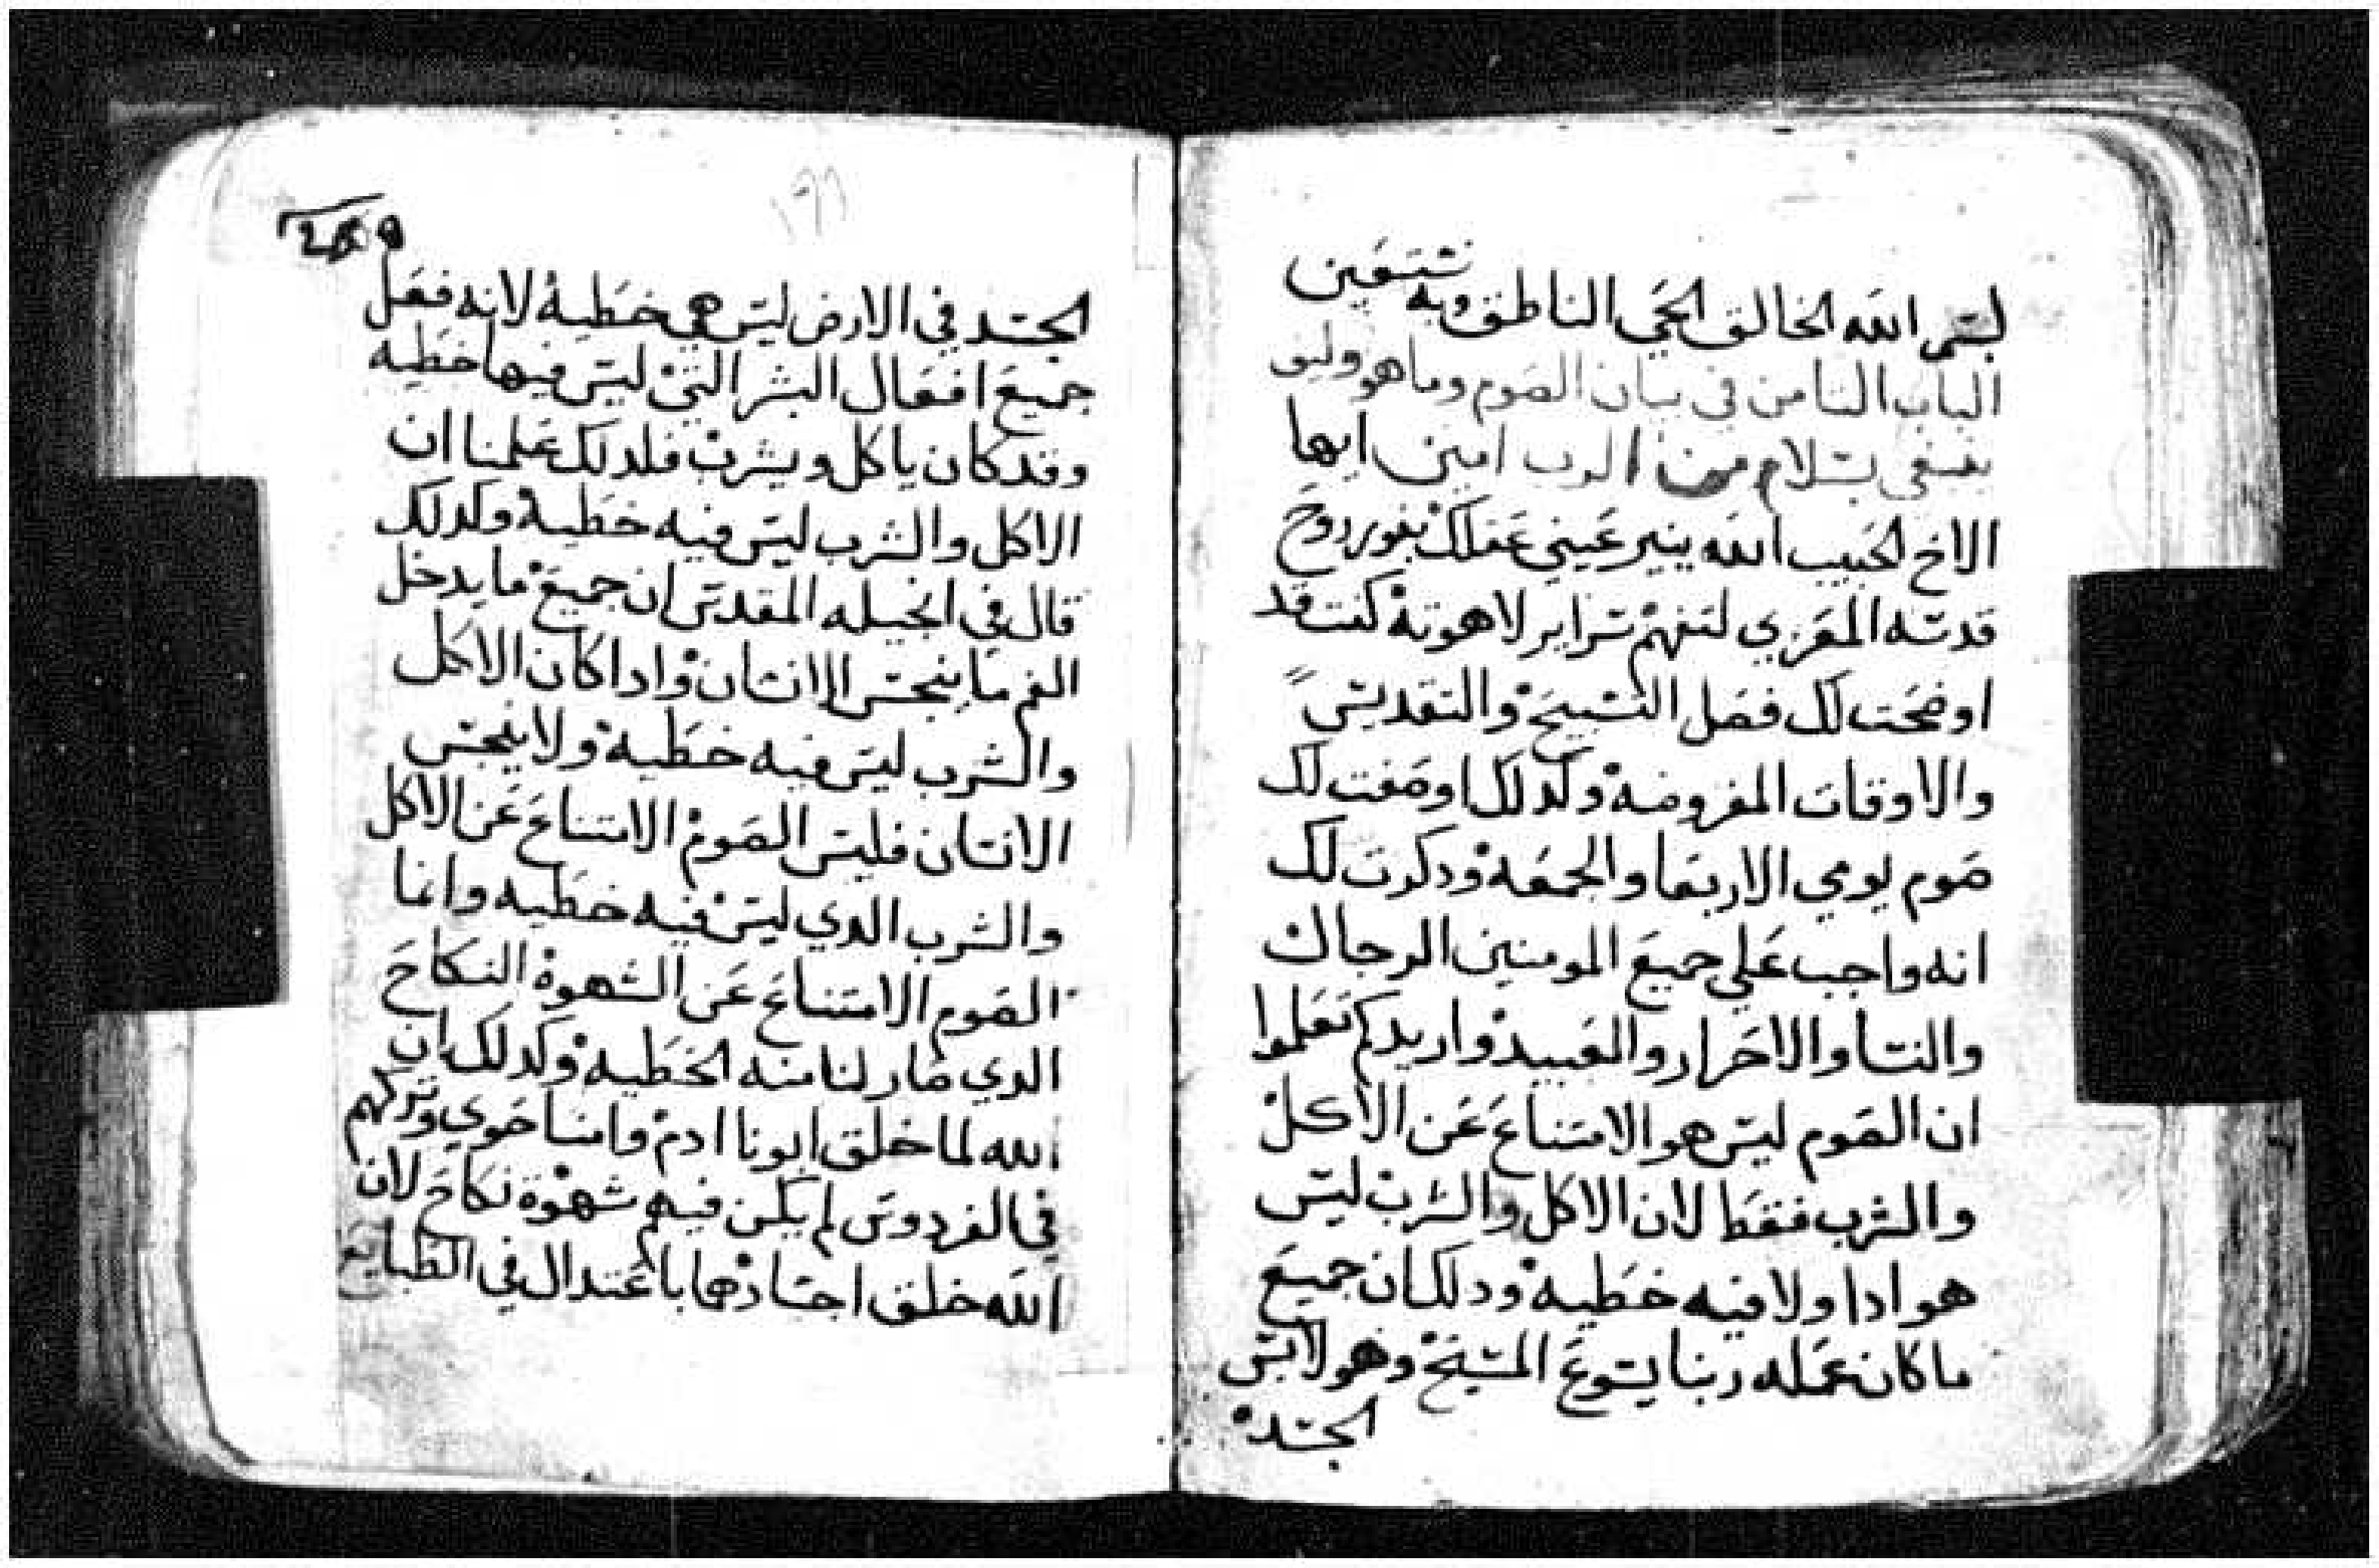 بسم الله الخالق الحي الناطق وبه نستعين
الباب الثامن في بيان الصوم وما هو وليف
ينبغي بسلام من الرب امين ايها
الاخ الحبيب الله ينير عيني عقلك بنور روح
قدسه المعزي لتفهم سراير لاهوته كنت قد
اوضحت لك فصل التسبيح والتقديس
والاوقات المفروضه وكدلك اوصفت لك
صوم يومي الاربعا والجمعه ودكرت لك
انه واجب علي جميع المومنين الرجال
والنسا والاحرار والعبيد واريدكم تعلموا
ان الصوم ليس هو الامتناع عن الاكل
والشرب فقط لان الاكل والشرب ليس
هو ادا ولا فيه خطيه ودلك ان جميع
ما كان عمله ربنا يسوع المسيح وهو لابس
الجسد
١٩٦
الجسد في الارض ليس هي خطيه لانه فعل
جميع افعال البشر التي ليس فيها خطيه
وقد كان ياكل ويشرب فلدلك علمنا ان
الاكل والشرب ليس فيه خطيه وكدلك
قال في انجيله المقدس ان جميع ما يدخل
الفم ما ينجس الانسان وادا كان الاكل
والشرب ليس فيه خطيه ولا ينجس
الانسان فليس الصوم الامتناع عن الاكل
والشرب الدي ليس فيه خطيه وانما
الصوم الامتناع عن الشهوة النكاح
الدي صار لنا منه الخطيه وكدلك ان
الله لما خلق ابونا ادم وامنا حوي وتركهم
في الفردوس لم يكن فيهم شهوة نكاح لان
الله خلق اجسادهما باعتدال في الطبايع